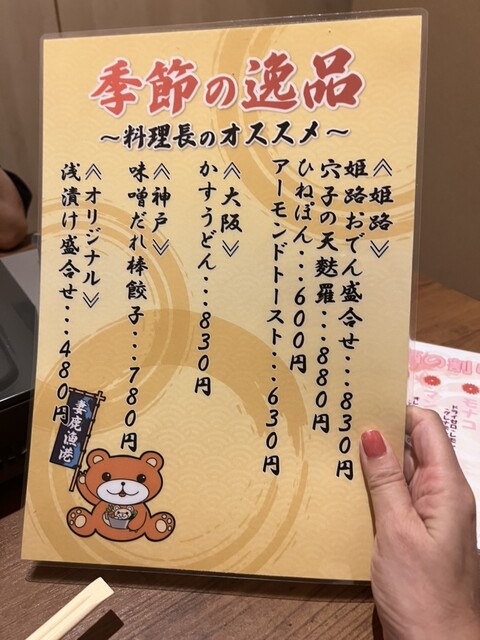 季節の逸品
～料理長のオススメ～
≪姫路≫
姫路おでん盛合せ...830円
穴子の天麩羅...880円
ひねぽん...600円
アーモンドトースト...630円
≪大阪≫
かすうどん...830円
≪神戸≫
味噌だれ棒餃子...780円
≪オリジナル≫
浅漬け盛合せ...480円
妻鹿漁港
モナコ